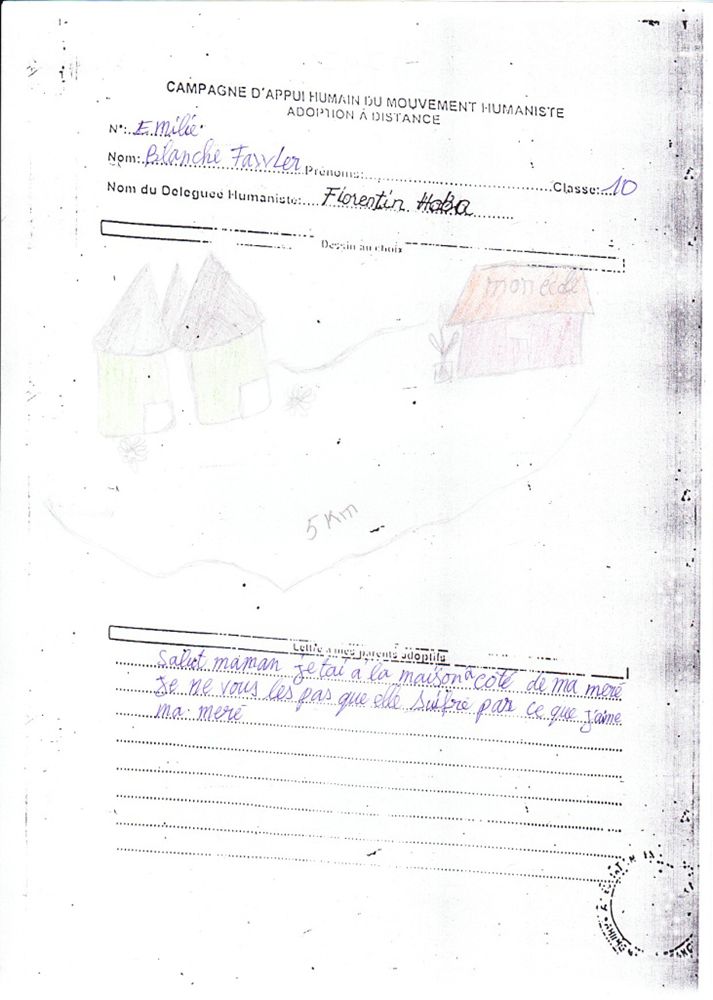 CAMPAGNE D'APPUI HUMAIN DU MOUVEMENT HUMANISTE
ADOPTION À DISTANCE
N°: Emilie.
Nom: Blanche Prénoms: Classe: 10
Nom du Deleguee Humaniste: Florentin Haba
Dessin au choix
mon école
5 Km
Lettre a mes parents adoptifs
Salut maman je tai à la maison à coté de ma meré
Je ne vous les pas que elle suffre par ce que j'aime
ma meré